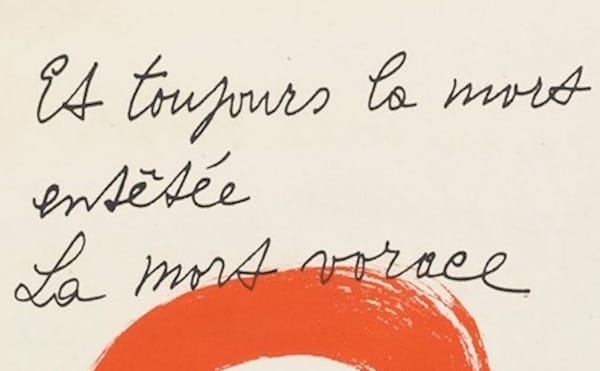 Et toujours la mort
entêtée
La mort vorace